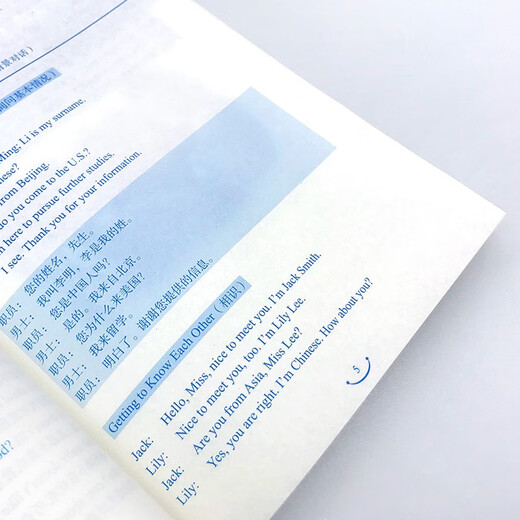 景对话）
询问基本情况）
Ming: Li is my surname.
nese?
from Beijing.
do you come to the U.S.?
n here to pursue further studies.
I see. Thank you for your information.
职员：您的姓名，先生。
男士：我叫李明，李是我的姓。
职员：您是中国人吗？
男士：是的。我来自北京。
职员：您为什么来美国？
男士：我来留学。
职员：明白了。谢谢您提供的信息。
Getting to Know Each Other（相识）
Jack: Hello, Miss, nice to meet you. I'm Jack Smith.
Lily: Nice to meet you, too. I'm Lily Lee.
Jack: Are you from Asia, Miss Lee?
Lily: Yes, you are right. I'm Chinese. How about you?
5
od?